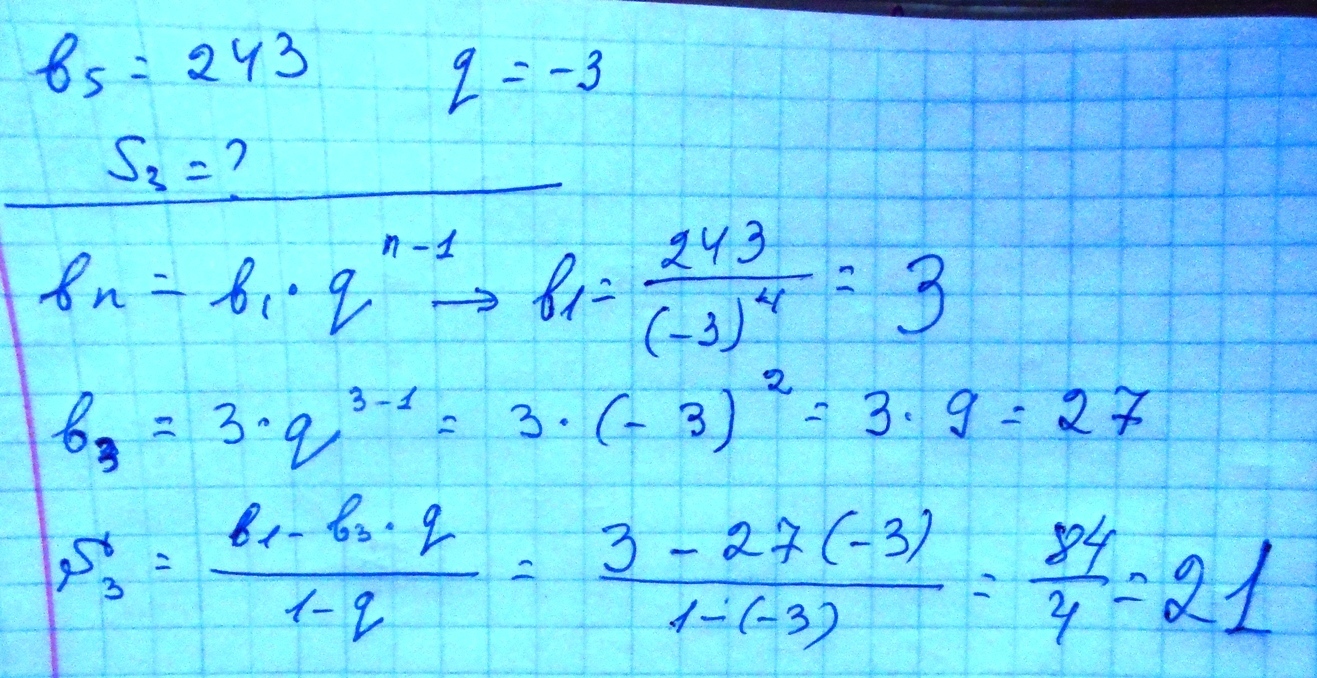 b₅ = 243 q = -3
S₃ = ?
bn = b₁ · q^(n-1) → b1 = 243/(-3)^4 = 3
b₃ = 3 · q^(3-1) = 3 · (-3)^2 = 3 · 9 = 27
S₃ = (b1 - b₃ · q)/(1-q) = (3 - 27(-3))/(1-(-3)) = 84/4 = 21